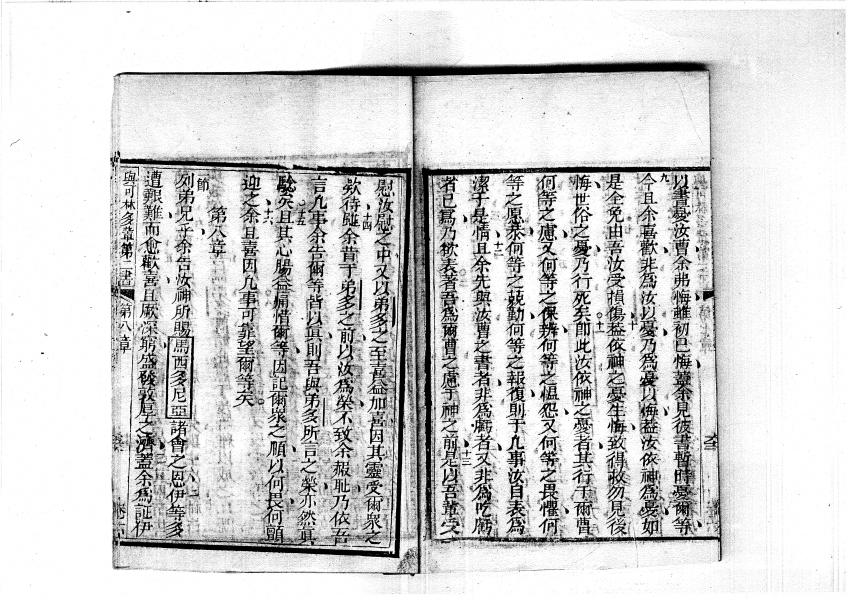 以書憂汝曹余弗悔雖初已悔蓋余見彼書暫時憂爾等
九
今且余喜歡非爲汝以憂乃爲憂以悔蓋汝依神爲憂如
是全免由吾汝受損傷蓋依神之憂生悔致得救勿見後
十
悔世俗之憂乃行死矣卽此汝依神之憂者其行于爾曹
十一
何等之慮又何等之保辨何等之愠怨又何等之畏懼何
等之愿慕何等之兢勤何等之報復則于凡事汝自表爲
十二
潔于是情且余先與汝曹之書者非爲虧者又非爲吃虧
者已爲乃欲表者吾爲爾曹之慮于神之前是以吾輩受
十三
慰汝慰之中又以弟多之至喜益加喜因其靈受爾衆之
十四
款待蓋余昔于弟多之前以汝爲榮不致余報耻乃依吾
言凡事余告爾等皆以真則吾與弟多所言之榮亦然真
十五
驗矣且其心腸益痛惜爾等因記爾衆之順以何畏何顫
十六
迎之余且喜因凡事可靠望爾等矣
第八章
節
列弟兄乎余告汝神所賜馬西多尼亞諸會之恩伊等多
遭艱難而愈歡喜且厥深窮盛發
之濟蓋余爲証伊
與可林多輩第二書
第八章